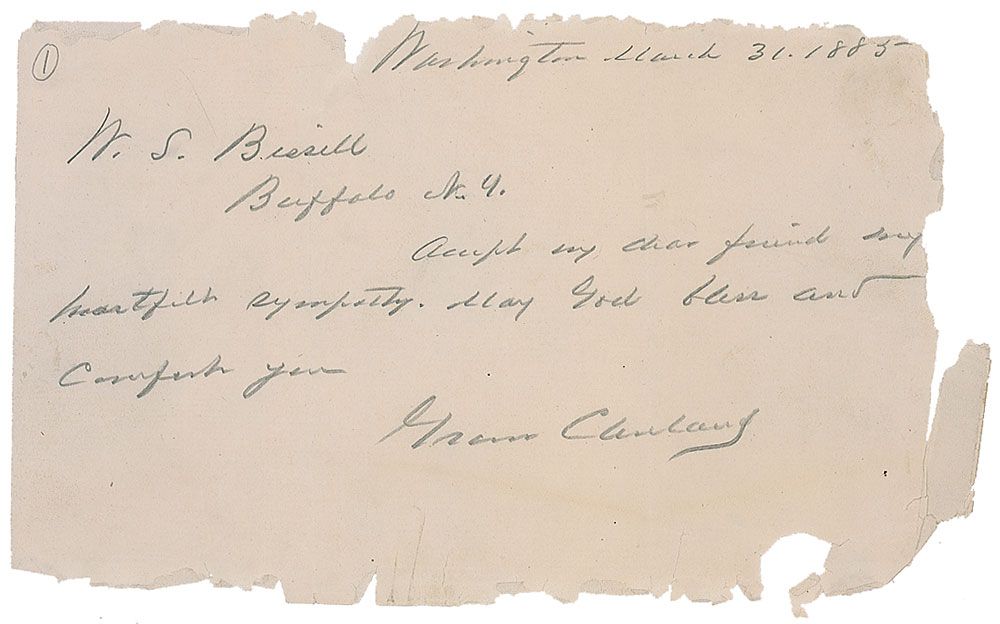 ①
Washington March 31. 1885
W. S. Bissell
Buffalo N. Y.
Accept my dear friend my
heartfelt sympathy. May God bless and
Comfort you
Grover Cleveland